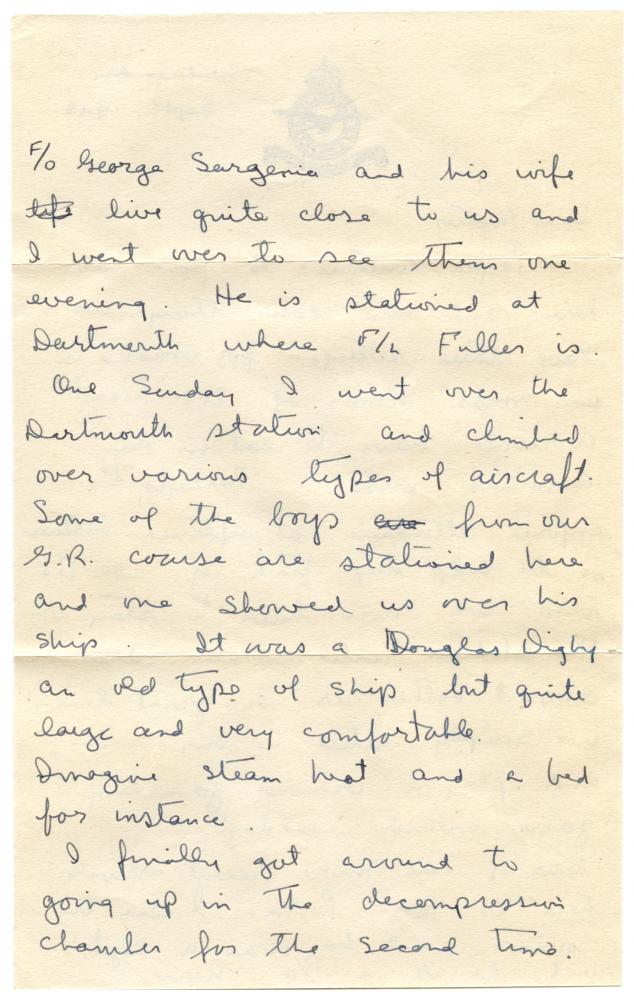 F/O George Sargenia and his wife
live quite close to us and
I went over to see them one
evening. He is stationed at
Dartmouth where F/L Fuller is.
One Sunday I went over the
Dartmouth station and climbed
over various types of aircraft.
Some of the boys are from our
G.R. course are stationed here
and one showed us over his
ship. It was a Douglas Digby -
an old type of ship but quite
large and very comfortable.
Imagine steam heat and a bed
for instance.
I finally got around to
going up in the decompression
chamber for the second time.